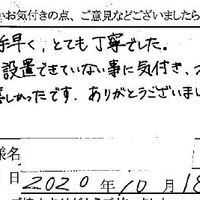 お気付きの点、ご意見などございましたら
手早く、とても丁寧でした。
設置できていない事に気付き、
しかったです。ありがとうございまし
様名
日 2020 年 10 月 18